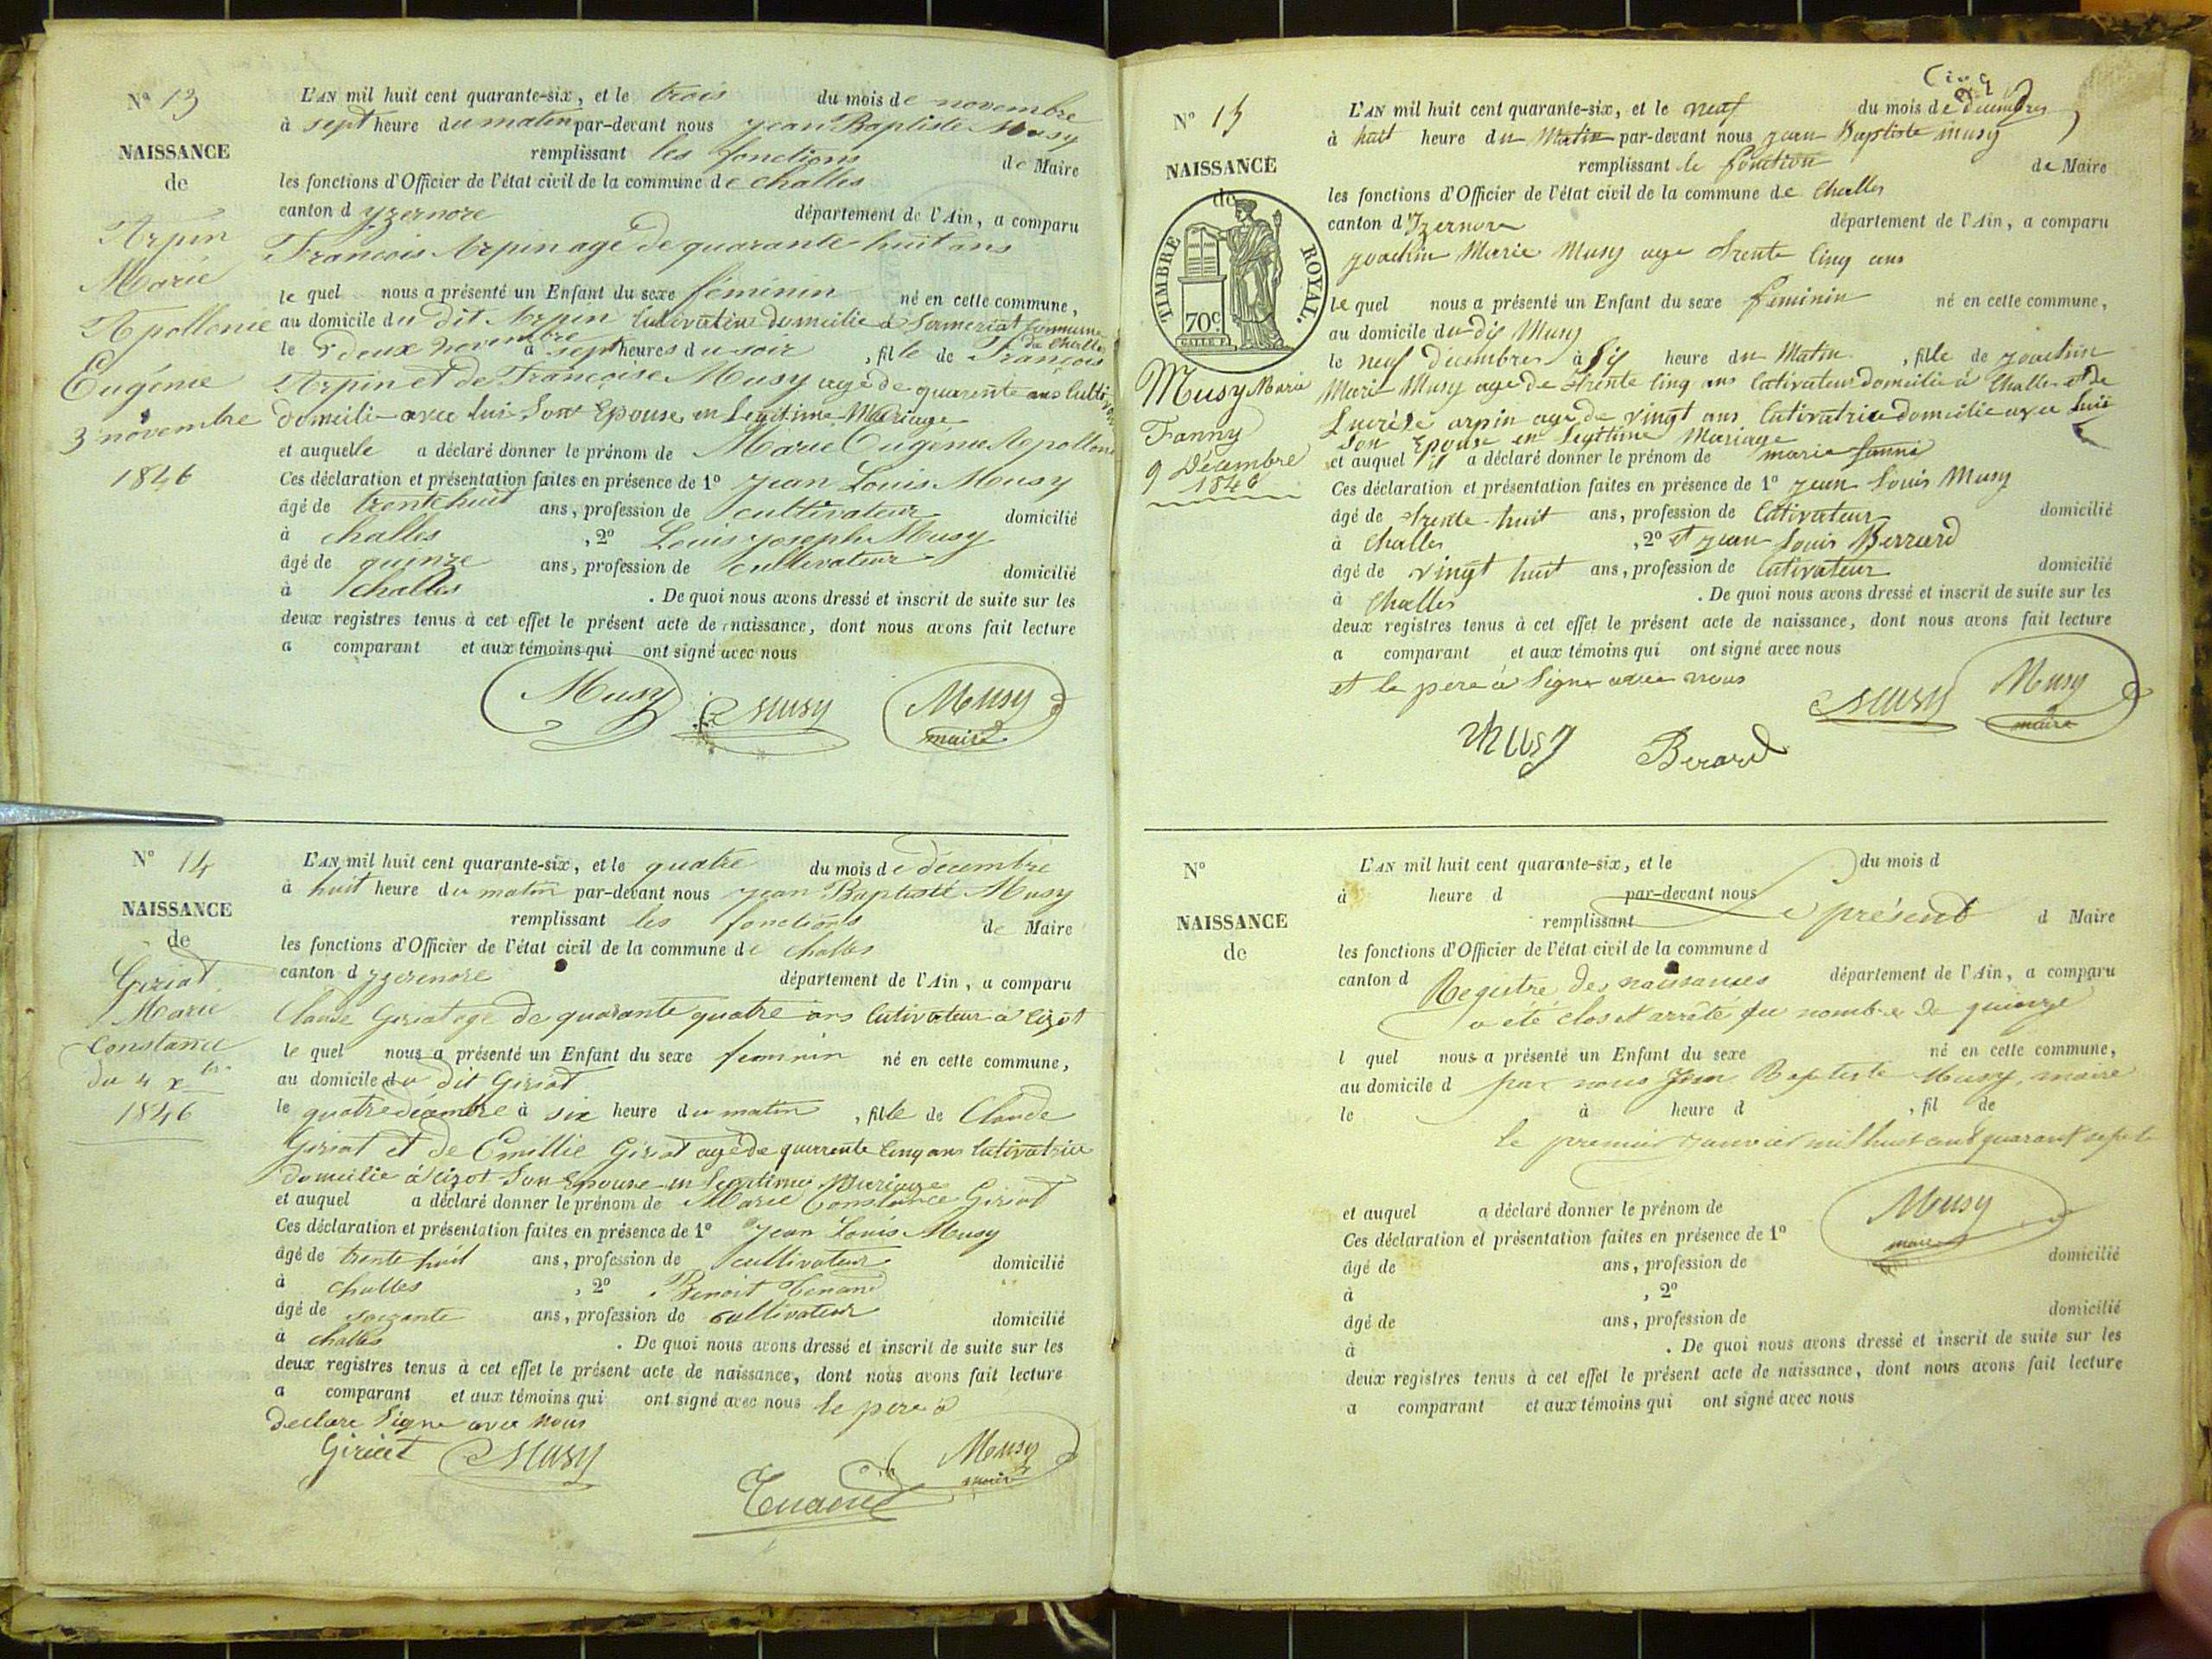 N° 13
NAISSANCE
de
Arpin
Marie
Apollonie
Eugénie
3 novembre
1846
L'AN mil huit cent quarante-six, et le trois du mois de novembre
à sept heure du matin par-devant nous Jean Baptiste Musy
remplissant les fonctions de Maire
les fonctions d'Officier de l'état civil de la commune de challes
canton d yzernore département de l'Ain, a comparu
Francois Arpin agé de quarante huit ans
le quel nous a présenté un Enfant du sexe féminin né en cette commune,
au domicile du dit Arpin Cultivateur domicilié à commune de Challes
le deux novembre à sept heures du soir, fille de François
Arpin et de Françoise Musy agé de quarente ans
domicili avec lui Son Epouse en Legitime Mariage
et auquelle a déclaré donner le prénom de Marie Eugenie Apollonie
Ces déclaration et présentation faites en présence de 1° Jean Louis Musy
âgé de trente huit ans, profession de cultivateur domicilié
à challes, 2° Louis Joseph Musy
âgé de quinze ans, profession de cultivateur domicilié
à challes. De quoi nous avons dressé et inscrit de suite sur les
deux registres tenus à cet effet le présent acte de naissance, dont nous avons fait lecture
a comparant et aux témoins qui ont signé avec nous
Musy Musy Musy
maire
N° 14
NAISSANCE
de
Giriat
Marie
Constance
du 4 xbre
1846
L'AN mil huit cent quarante-six, et le quatre du mois de décembre
à huit heure du matin par-devant nous Jean Baptiste Musy
remplissant les fonctions de Maire
les fonctions d'Officier de l'état civil de la commune de challes
canton d yzerenore département de l'Ain, a comparu
Claude Giriat agé de quarante quatre ans Cultivateur à Cizot
le quel nous a présenté un Enfant du sexe feminin né en cette commune,
au domicile du dit Giriat
le quatre décembre à six heure du matin, fille de Claude
Giriat et de Emillie Giriat agé de quarrente Cinq ans Cultivatrice
domicilie à Cizot Son Epouse en Legitime Mariage
et auquel a déclaré donner le prénom de Marie Constance Giriat
Ces déclaration et présentation faites en présence de 1° Jean Louis Musy
âgé de trente huit ans, profession de cultivateur domicilié
à challes, 2° Benoit Tenand
âgé de soizante ans, profession de cultivateur domicilié
à challes. De quoi nous avons dressé et inscrit de suite sur les
deux registres tenus à cet effet le présent acte de naissance, dont nous avons fait lecture
a comparant et aux témoins qui ont signé avec nous le pere a
declare Signe avec nous
Giriat Musy Musy
maire
Tenand
Cinq
N° 15
NAISSANCE
de
TIMBRE ROYAL.
70c
Musy Marie
Fanny
9 Décembre
1846
L'AN mil huit cent quarante-six, et le neuf du mois de decembres
à huit heure du Matin par-devant nous Jean Baptiste Musy
remplissant le fonction de Maire
les fonctions d'Officier de l'état civil de la commune de Challes
canton d'Yzernore département de l'Ain, a comparu
Joachin Marie Musy age Trente Cinq ans
le quel nous a présenté un Enfant du sexe feminin né en cette commune,
au domicile du dis Musy
le neuf decembres à Sis heure du Matin, fille de Joachin
Marie Musy age de Trente Cinq ans Cultivateur domicilié à Challes et de
Lucrèse arpin age de vingt ans Cultivatrice domicilie avec luis
Son Epouse en Legitime Mariage
et auquel il a déclaré donner le prénom de marie fanni
Ces déclaration et présentation faites en présence de 1° Jean Louis Musy
âgé de Trente huit ans, profession de Cultivateur domicilié
à Challes, 2° et Jean Louis Berrard
âgé de vingt huit ans, profession de Cultivateur domicilié
à Challes. De quoi nous avons dressé et inscrit de suite sur les
deux registres tenus à cet effet le présent acte de naissance, dont nous avons fait lecture
a comparant et aux témoins qui ont signé avec nous
et le pere à Signe avec nous
Musy Berard Musy Musy
maire
N°
NAISSANCE
de
L'AN mil huit cent quarante-six, et le du mois d
à heure d par-devant nous
remplissant Le présent d Maire
les fonctions d'Officier de l'état civil de la commune d
canton d département de l'Ain, a comparu
Registre des naissances
a été clos et arrêté au nombre de quinze
l quel nous a présenté un Enfant du sexe né en cette commune,
au domicile d par nous Jean Baptiste Musy, maire
le à heure d, fil de
le premier Janvier mil huit cent quarant sept
et auquel a déclaré donner le prénom de
Musy
maire
Ces déclaration et présentation faites en présence de 1°
âgé de ans, profession de domicilié
à, 2°
âgé de ans, profession de domicilié
à. De quoi nous avons dressé et inscrit de suite sur les
deux registres tenus à cet effet le présent acte de naissance, dont nous avons fait lecture
a comparant et aux témoins qui ont signé avec nous